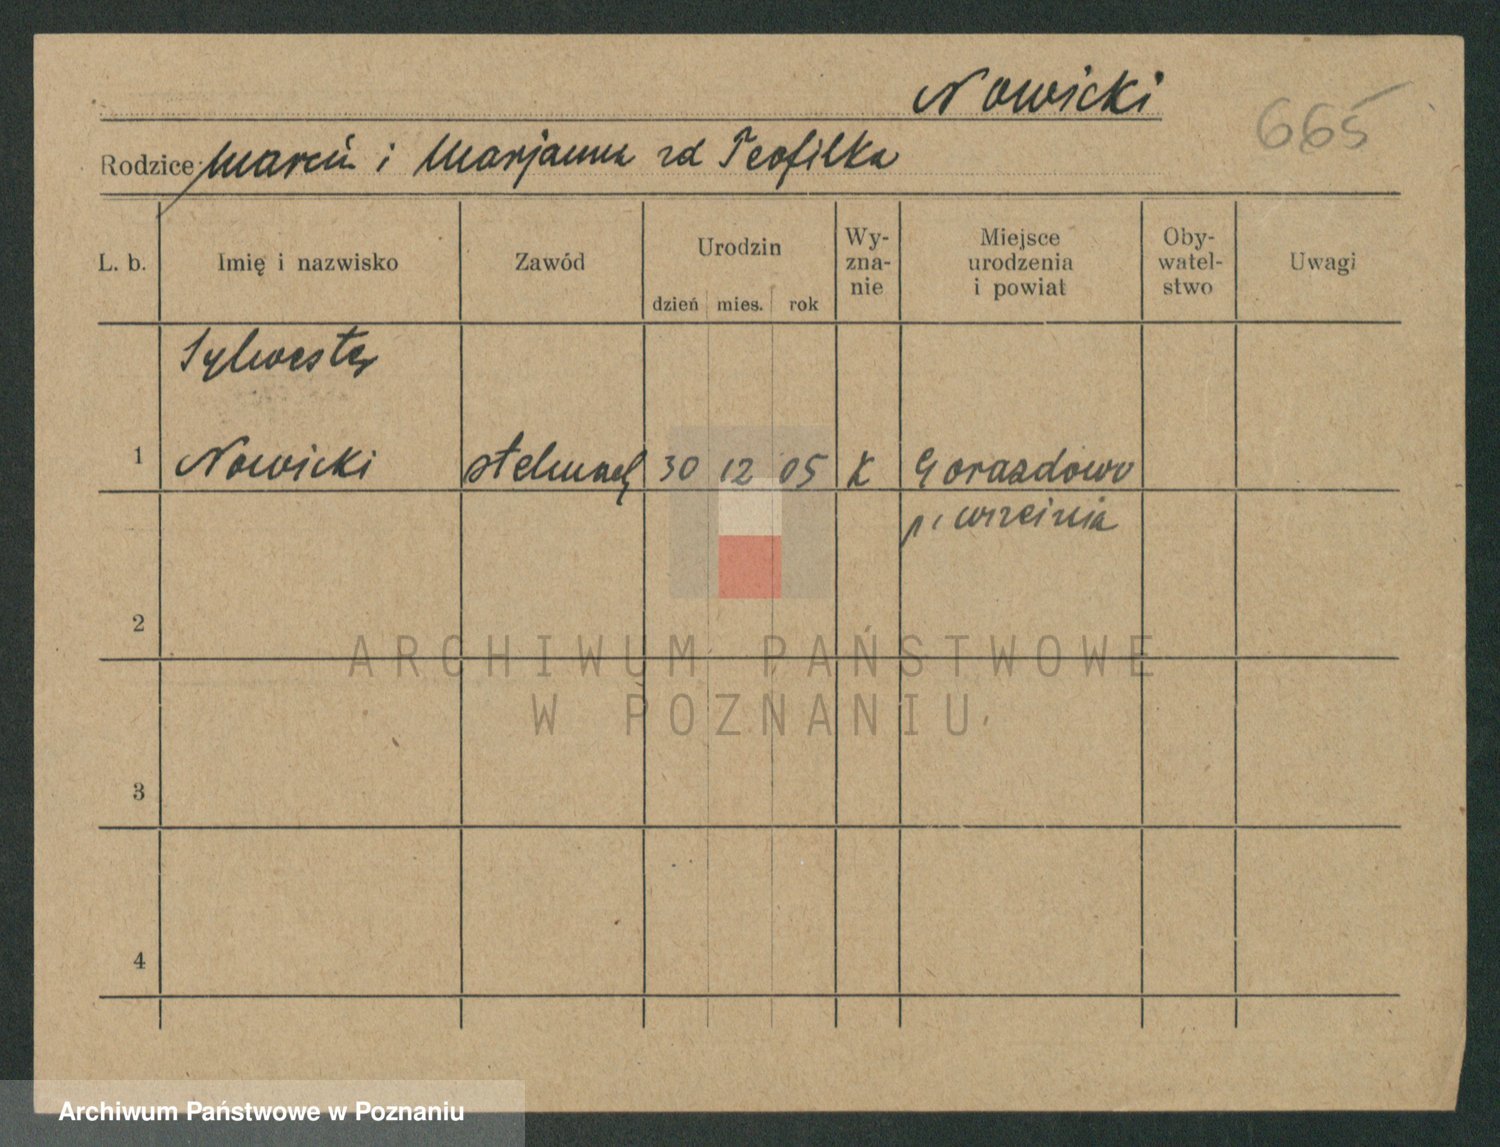 Nowicki
665
Rodzice: Marcin i Marjanna zd Teofilka
L. b.
Imię i nazwisko
Zawód
Urodzin
dzień mies. rok
Wy-
zna-
nie
Miejsce
urodzenia
i powiat
Oby-
watel-
stwo
Uwagi
Sylwester
1 Nowicki stelmach 30 12 05 K Gorazdowo
p. Września
2
3
4
ARCHIWUM PAŃSTWOWE
W POZNANIU
Archiwum Państwowe w Poznaniu